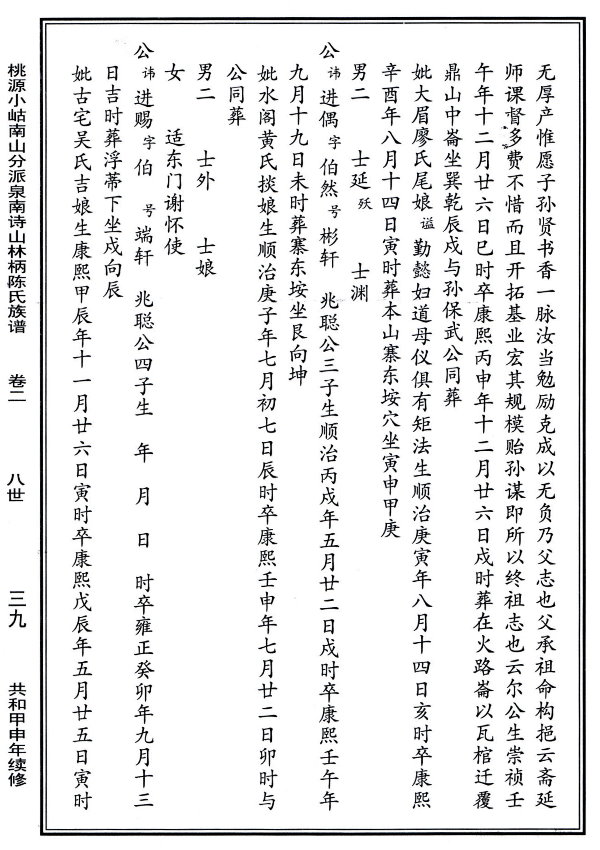 无厚产惟愿子孙贤书香一脉汝当勉励克成以无负乃父志也父承祖命构挹云斋延
师课督多费不惜而且开拓基业宏其规模贻孙谋即所以终祖志也云尔公生崇祯壬
午年十二月廿六日巳时卒康熙丙申年十二月廿六日戌时葬在火路崙以瓦棺迁覆
鼎山中崙坐巽乾辰戌与孙保武公同葬
妣大眉廖氏尾娘谥勤懿妇道母仪俱有矩法生顺治庚寅年八月十四日亥时卒康熙
辛酉年八月十四日寅时葬本山寨东垵穴坐寅申甲庚
男二 士延殀 士渊
公讳进偶字伯然号彬轩 兆聪公三子生顺治丙戌年五月廿二日戌时卒康熙壬午年
九月十九日未时葬寨东垵坐艮向坤
妣水阁黄氏掞娘生顺治庚子年七月初七日辰时卒康熙壬申年七月廿二日卯时与
公同葬
男二 士外 士娘
女 适东门谢怀使
公讳进赐字伯 号端轩 兆聪公四子生 年 月 日 时卒雍正癸卯年九月十三
日吉时葬浮蒂下坐戌向辰
妣古宅吴氏吉娘生康熙甲辰年十一月廿六日寅时卒康熙戊辰年五月廿五日寅时
桃源小岵南山分派泉南诗山林柄陈氏族谱 卷二 八世 三九 共和甲申年续修